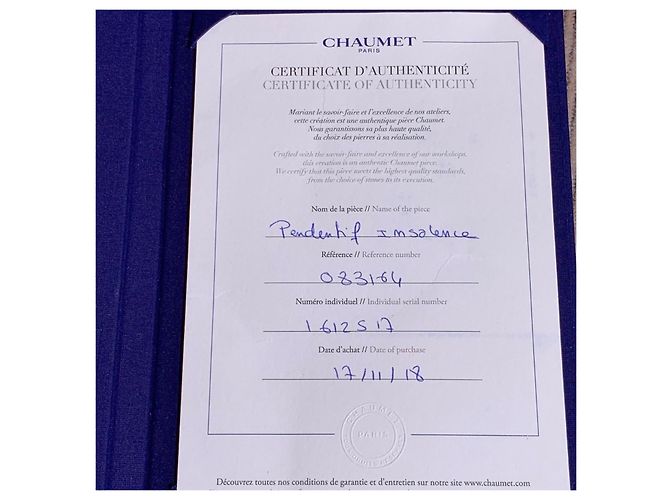 CHAUMET
PARIS
CERTIFICAT D'AUTHENTICITÉ
CERTIFICATE OF AUTHENTICITY
Mariant le savoir-faire et l'excellence de nos ateliers,
cette création est une authentique pièce Chaumet.
Nous garantissons sa plus haute qualité,
du choix des pierres à sa réalisation.
Crafted with the savoir-faire and excellence of our workshops,
this creation is an authentic Chaumet piece.
We certify that this piece meets the highest quality standards,
from the choice of stones to its execution.
Nom de la pièce // Name of the piece
Pendentif Insolence
Référence // Reference number
083164
Numéro individuel // Individual serial number
1612517
Date d'achat // Date of purchase
17/11/18
CHAUMET
PARIS
Découvrez toutes nos conditions de garantie et d'entretien sur notre site www.chaumet.com